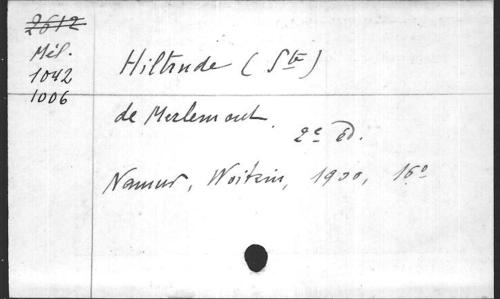 2612
Mél.
1042
1006
Hiltrude (Ste)
de Merlemont.
2e éd.
Namur, Woitrin, 1900, 16o